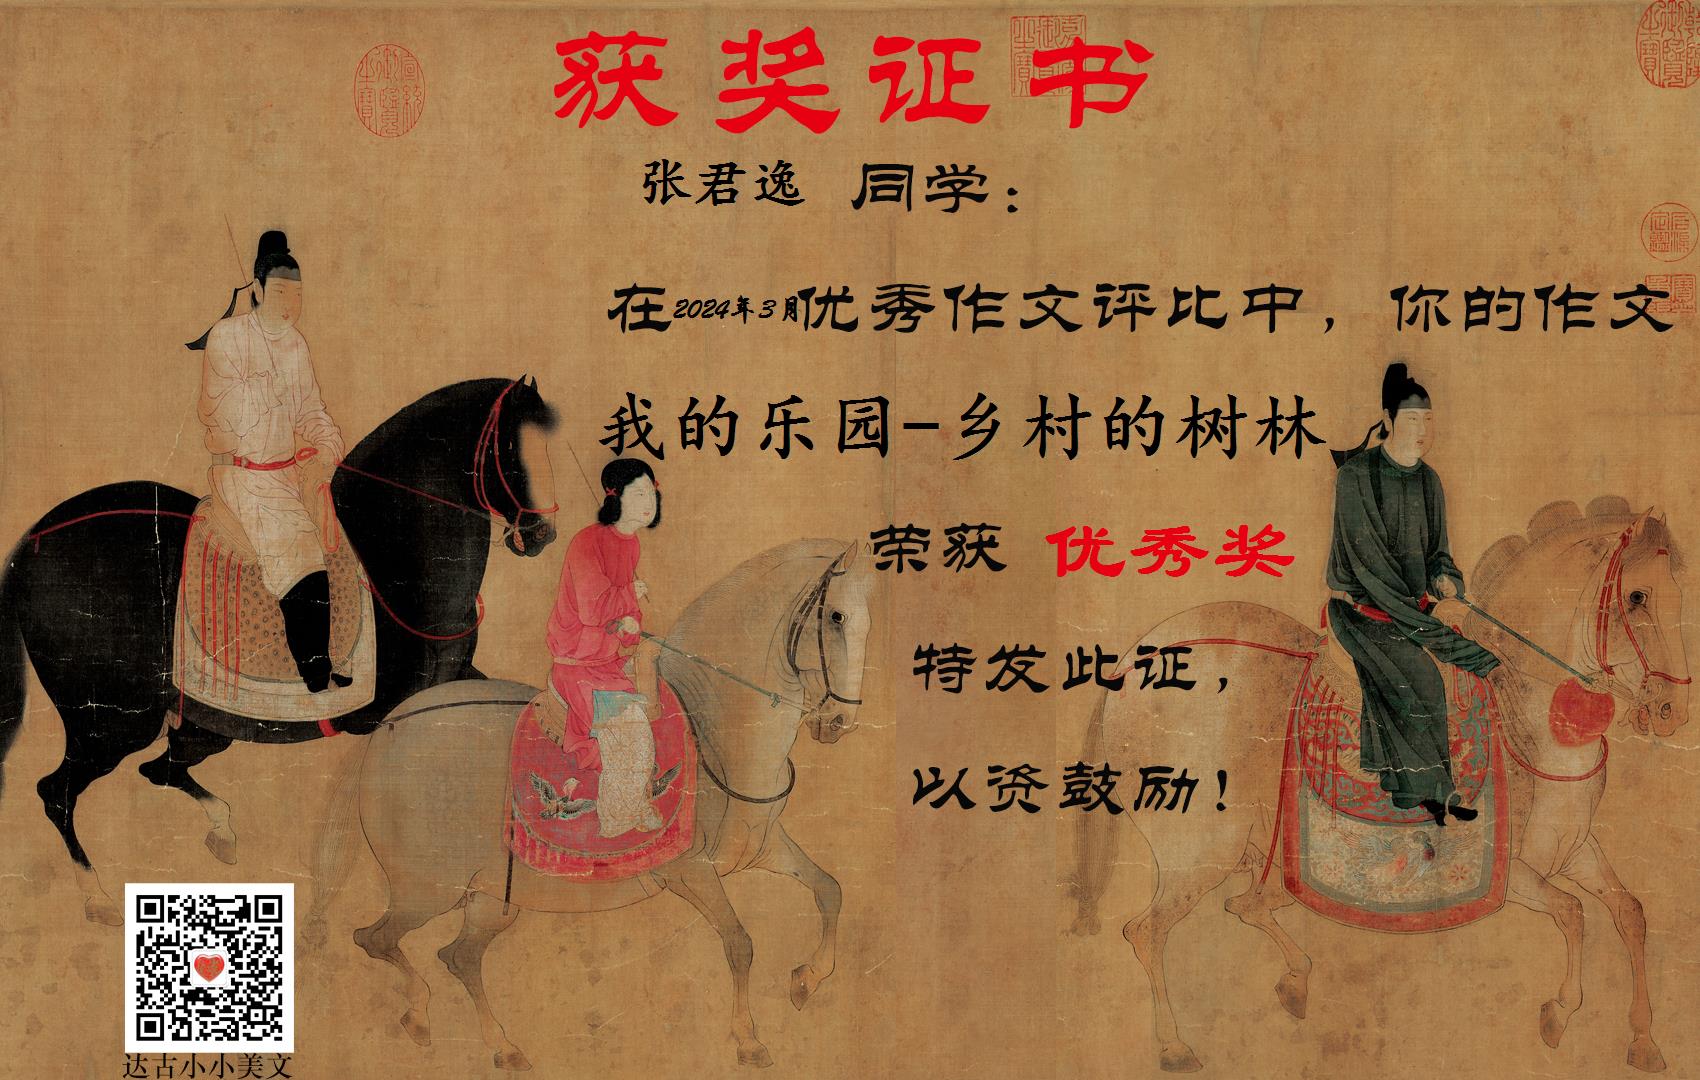 获奖证书
张君逸 同学：
在2024年3月优秀作文评比中，你的作文
我的乐园-乡村的树林
荣获 优秀奖
特发此证，
以资鼓励！
达古小小美文